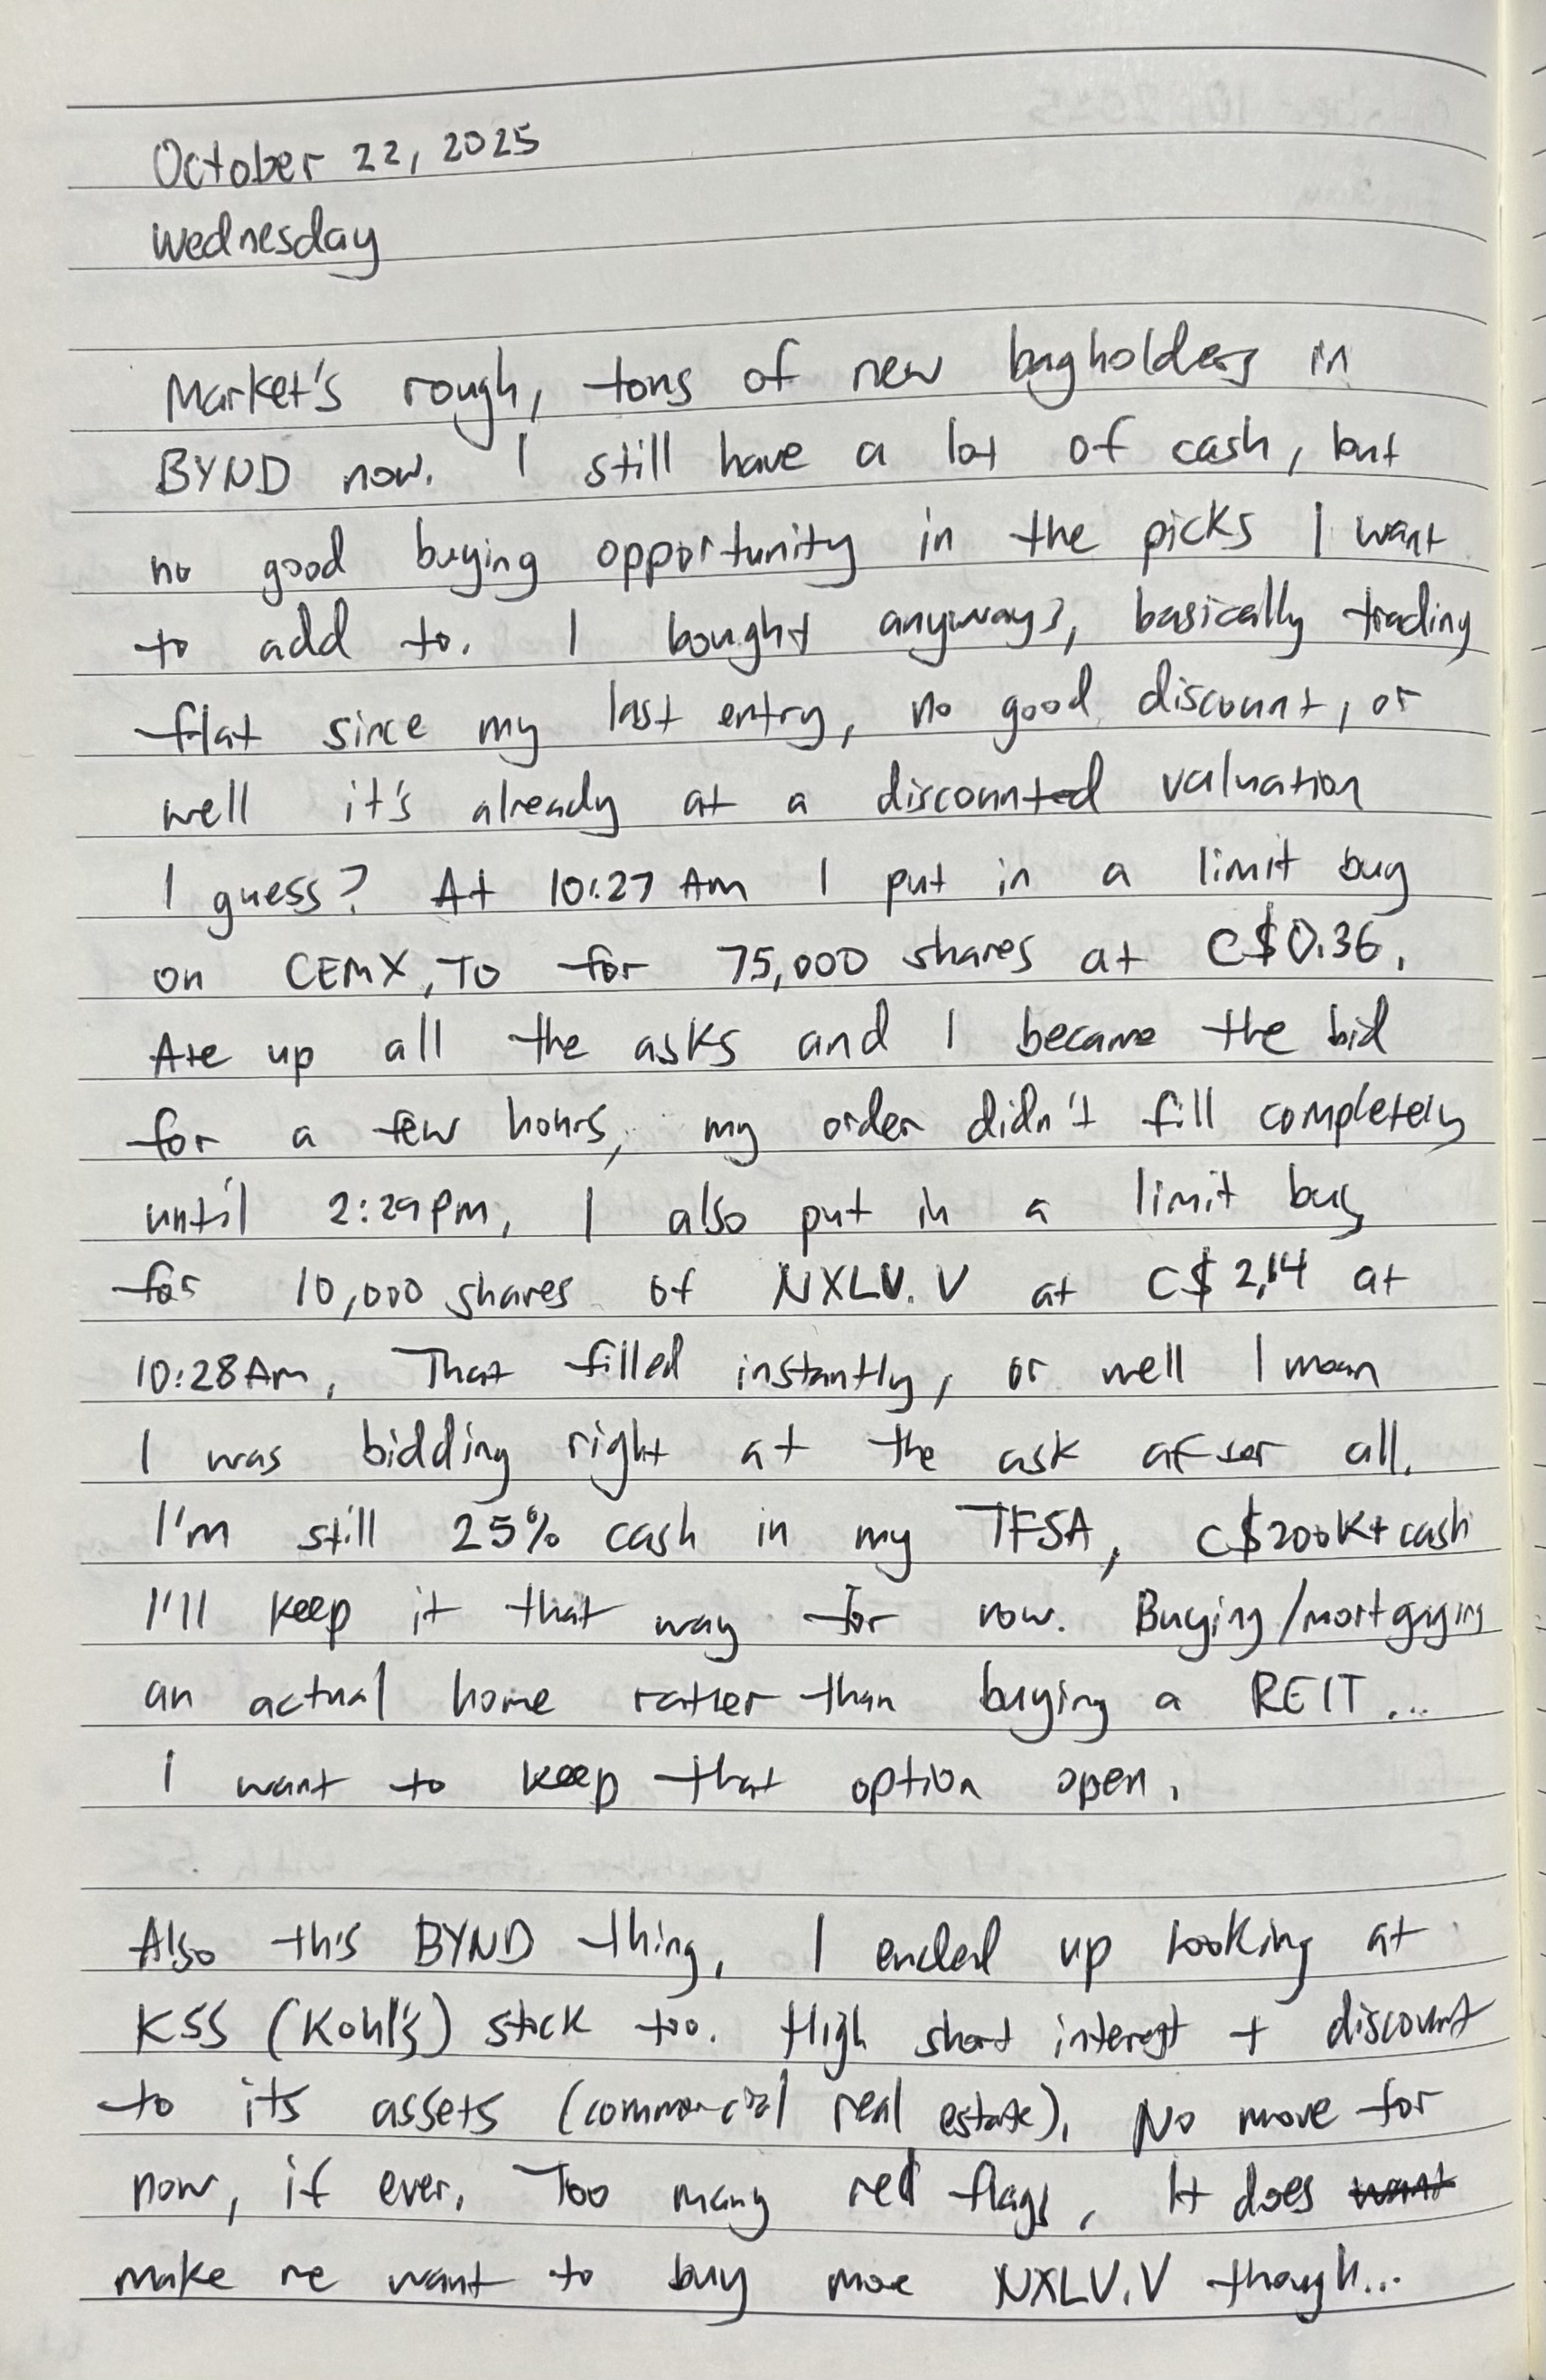 October 22, 2025
Wednesday
Market's rough, tons of new bagholders in
BYND now. I still have a lot of cash, but
no good buying opportunity in the picks I want
to add to. I bought anyways, basically trading
flat since my last entry, no good discount, or
well it's already at a discounted valuation
I guess? At 10:27 AM I put in a limit buy
on CEMX.TO for 75,000 shares at C$0.36.
Ate up all the asks and I became the bid
for a few hours, my order didn't fill completely
until 2:29PM, I also put in a limit buy
for 10,000 shares of NXLV.V at C$2.14 at
10:28AM. That filled instantly, or well I mean
I was bidding right at the ask after all.
I'm still 25% cash in my TFSA, C$200K+ cash
I'll keep it that way for now. Buying/mortgaging
an actual home rather than buying a REIT...
I want to keep that option open.
Also this BYND thing, I ended up looking at
KSS (Kohl's) stock too. High short interest + discount
to its assets (commercial real estate). No move for
now, if ever. Too many red flags. It does want
make me want to buy more NXLV.V though...